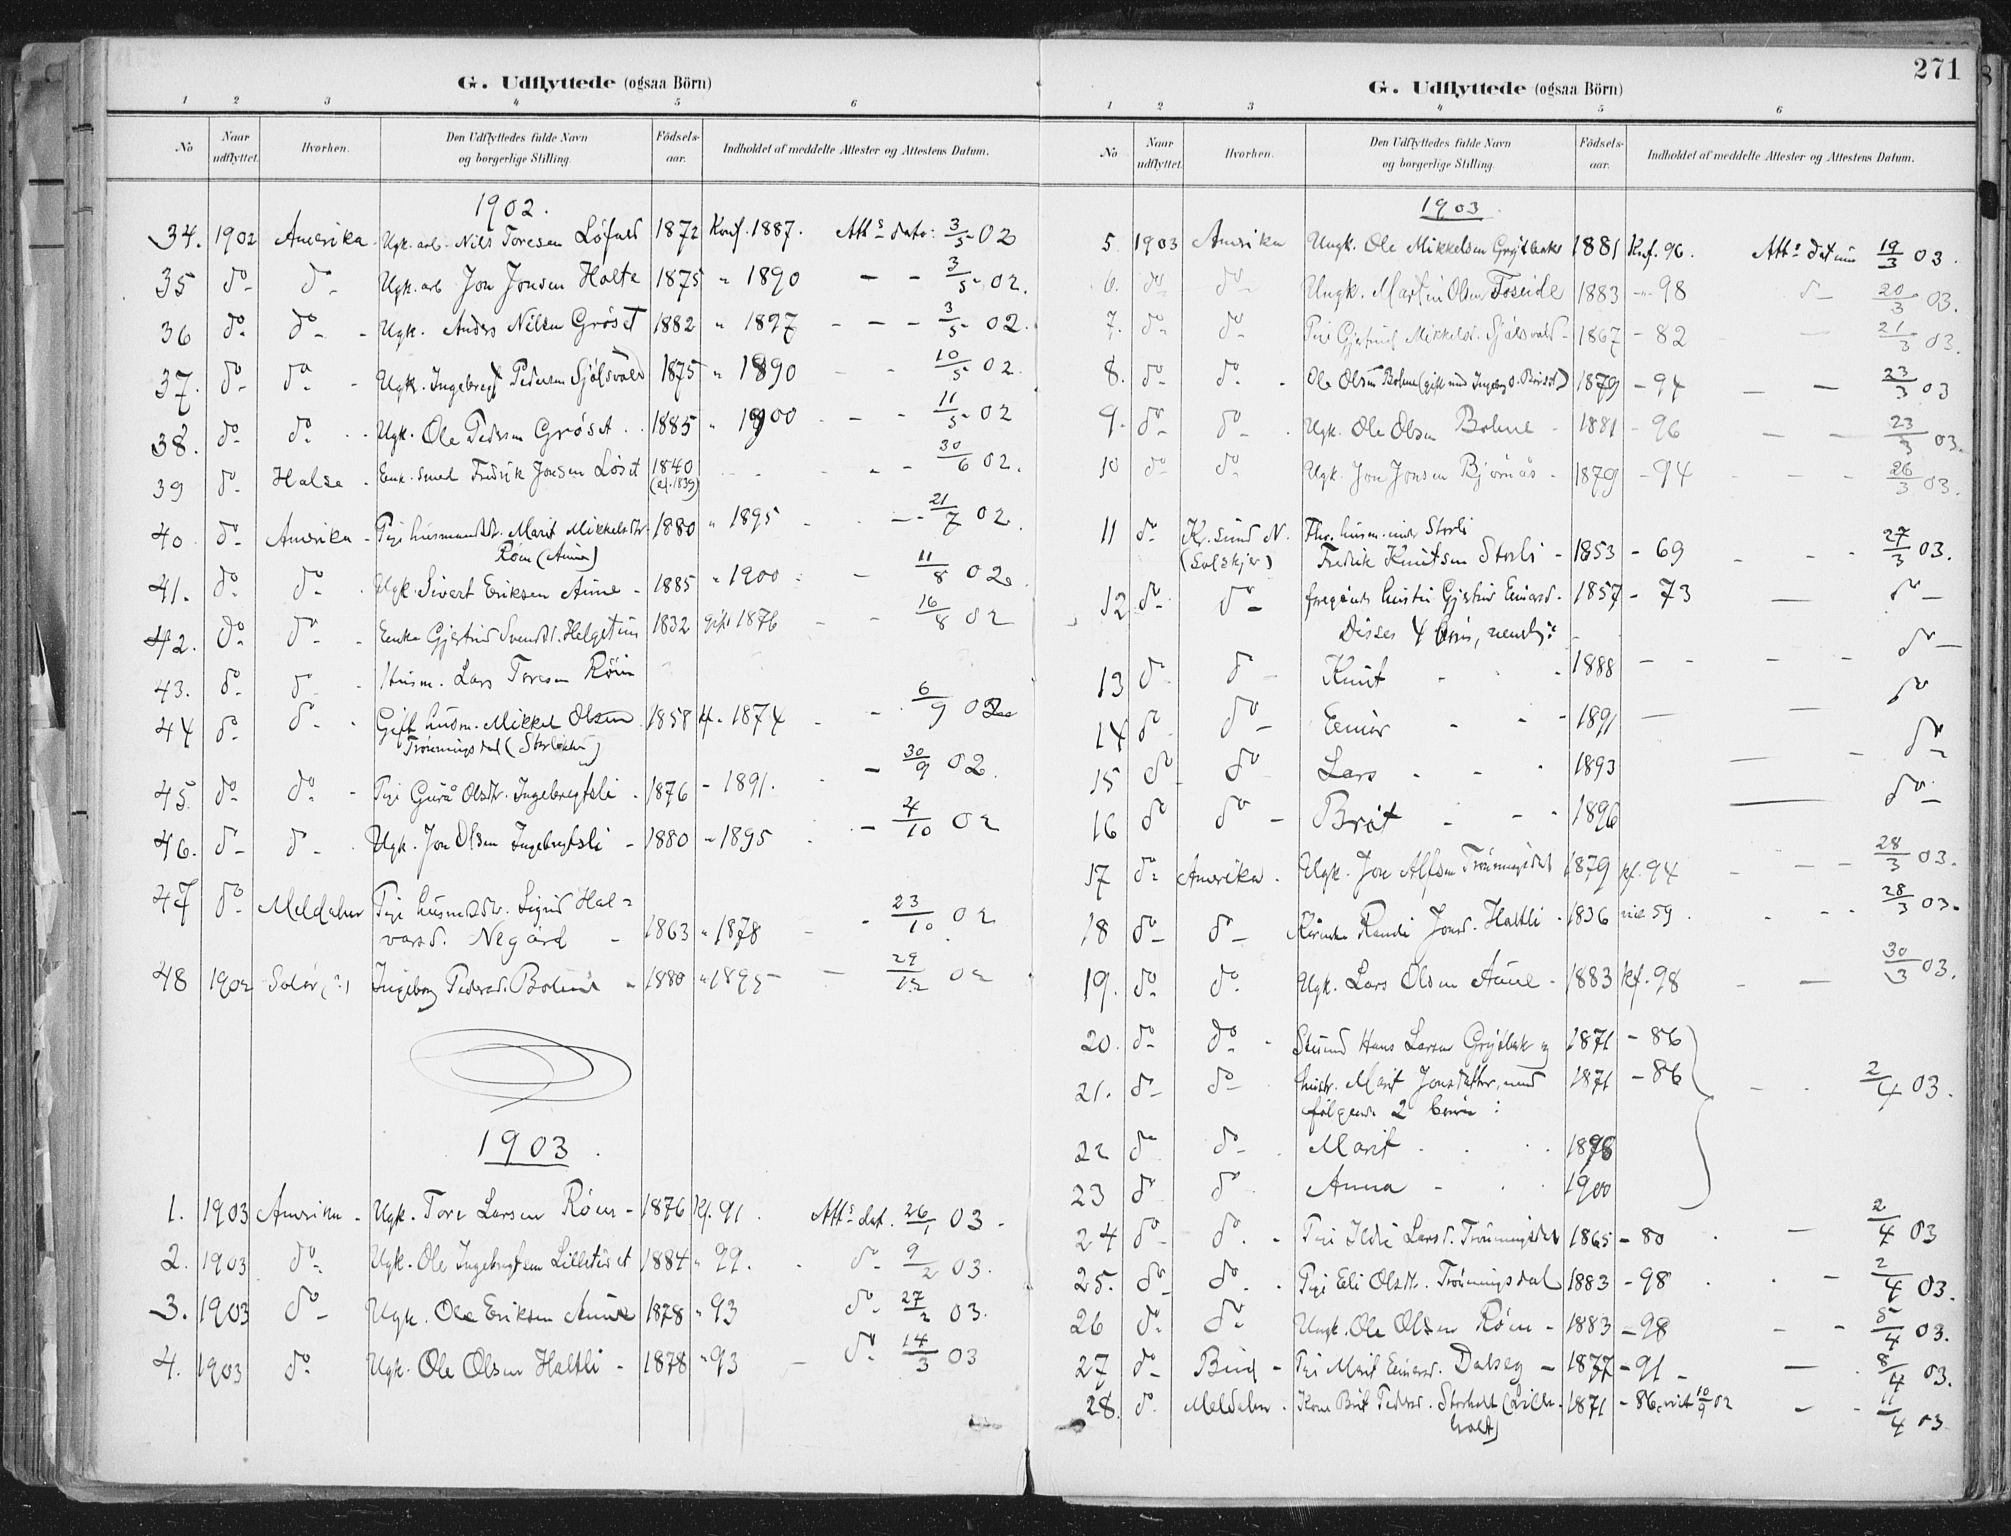 G. Udflyttede (ogsaa Börn)
1 2 3 4 5 6
No Naar udflyttet. Hvorhen. Den Udflyttedes fulde Navn og borgerlige Stilling. Födsels-aar. Indholdet af meddelte Attester og Attestens Datum.
1902.
34. 1902 Amerika. Ugk. arb. Nils Toresen 1872 Konf. 1887. Atts dato: 3/5 02
35 do do Ugk. arb Jon Jonsen Holte 1875 " 1890 - - 3/5 02.
36 do do - Ugk. Anders Nilsen Gröset 1882 " 1897 - - - 3/5 02.
37. do do - Ugk. Ingebregt Pedersen Sjölsvold 1875 " 1890 - - 10/5 02.
38. do do Ugk. Ole Pedersen Gröset 1885 " 1900 - - 11/5 02
39 do Halse - Enk. Fredrik Jonsen Löset 1840 (ell. 1839) - - 30/6 02.
40 do Amerika - Pige husmandsdtr. Marit Mikkelsdtr. 1880 " 1895 - - 21/7 02.
Röen (Aune)
41. do do Ugk. Sivert Eriksen Aune - 1885 " 1900 - 11/8 02
42. do do Enke Gjertrud Svendsdr. Helgetun 1832 gift 1876 - - 16/8 02
43. do do - Husm. Lars Toresen Röen
44 do do Gift husm. Mikkel Olsen 1858 kf. 1874 - - 6/9 02
Trönningsdal
45. do do - Pige Gurå Olsdtr. Ingebregtsli - 1876 - 1891. - 30/9 02.
46. do do Ugk. Jon Olsen Ingebregtsli - 1880 - 1895 - 4/10 02
47 do Meldalen Pige husmdsdtr. Sigrid Hal-
varsd. Negård - 1863 " 1878 - 23/10 02
48 1902 Solör (?) Ingeborg Pedersd. - 1880 " 1895 - 29/12 02
1903.
1. 1903 Amerika - Ugk. Tore Larsen Röen - 1876 Kf. 91 . Atts dat. 26/1 03 -
2. 1903 do Ugk. Ole Ingebregtsen 1884 " 99. do 9/2 03.
3. 1903 do Ugk. Ole Eriksen Aune 1878 " 93 do 27/2 03.
4. 1903 do Ugk. Ole Olsen Haltli - 1878 " 93 - do 14/3 03
271
G. Udflyttede (ogsaa Börn)
1 2 3 4 5 6
No Naar udflyttet. Hvorhen. Den Udflyttedes fulde Navn og borgerlige Stilling. Födsels-aar. Indholdet af meddelte Attester og Attestens Datum.
1903.
5. 1903 Amerika Ungk. Ole Mikkelsen 1881 Knf. 96. Atts datum 19/3 03.
6. do do Ungk. Martin Olsen Foseide 1883 - 98 d- 20/3 03.
7. do do Pige Gjertrud Mikkelsd. Sjölsvold - 1867 - 82 - 21/3 03.
8. do do - Ole Olsen Bolme 1879 - 94 - - 23/3 03
9. do do Ugk. Ole Olsen Bolme - 1881 - 96 - - 23/3 03.
10 do do Ugk. Jon Jonsen Bjørnås - 1879 - 94 - - 26/3 03.
11 do Kr.sund N. Fhv. husm. under Storli
(Solskjel) Fredrik Knutsen Storli - 1853 - 69 - - 27/3 03.
12 do do - foregåendes hustru Gjertrud Einarsd. - 1857 - 73 - do -
Disses 4 börn, nemlig:
13 do do Knut 1888 - - - - do -
14 do do - Einar - - 1891 - - do
15 do do Lars - - 1893 - - do
16 do do - Bröt - - 1896 - do -
17 do Amerika. Ugk. Jon Alfsen Trönningsdal 1879 kf. 94 - - 28/3 03.
18 do do - Randi Jonsd. Haltli - 1836 59. - - 28/3 03.
19. do do Ugk. Lars Olsen Aune - 1883 kf. 98 - 30/3 03.
20. do do - Hans Larsen og 1871 - 86
21. do do hustr. Marit Jonsdatter, med 1871 - 86 - - 2/4 03.
fölgende 2 börn:
22 do do Marit 1898
23 do do Anna - 1900
24 do do - Pige Ildri Larsd. Trönningsdal 1865 - 80 - 2/4 03
25. do do Pige Eli Olsdtr. Trönningsdal 1883 - 98 - 2/4 03.
26 do do Ungk. Ole Olsen Röen - 1883 - 98 - - 5/4 03.
27 do Bud - Pige Marit Einarsd. Dalseg - 1877 - 91 - - 8/4 03.
28. do Meldalen. Kone Brit Pedersd. Storholt (Lille- 1871 - 86, viet 10/9 02 - - 11/4 03
holt)